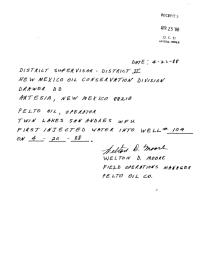 RECEIVED
APR 25 '88
O. C. D.
ARTESIA, OFFICE
DATE: 4-21-88
DISTRICT SUPERVISOR - DISTRICT II
NEW MEXICO OIL CONSERVATION DIVISION
DRAWER DD
ARTESIA, NEW MEXICO 88210
PELTO OIL, OPERATOR
TWIN LAKES SAN ANDRES WFU
FIRST INJECTED WATER INTO WELL # 104
ON 4 - 20 - 88 .
Welton D. Moore
WELTON D. MOORE
FIELD OPERATIONS MANAGER
PELTO OIL CO.